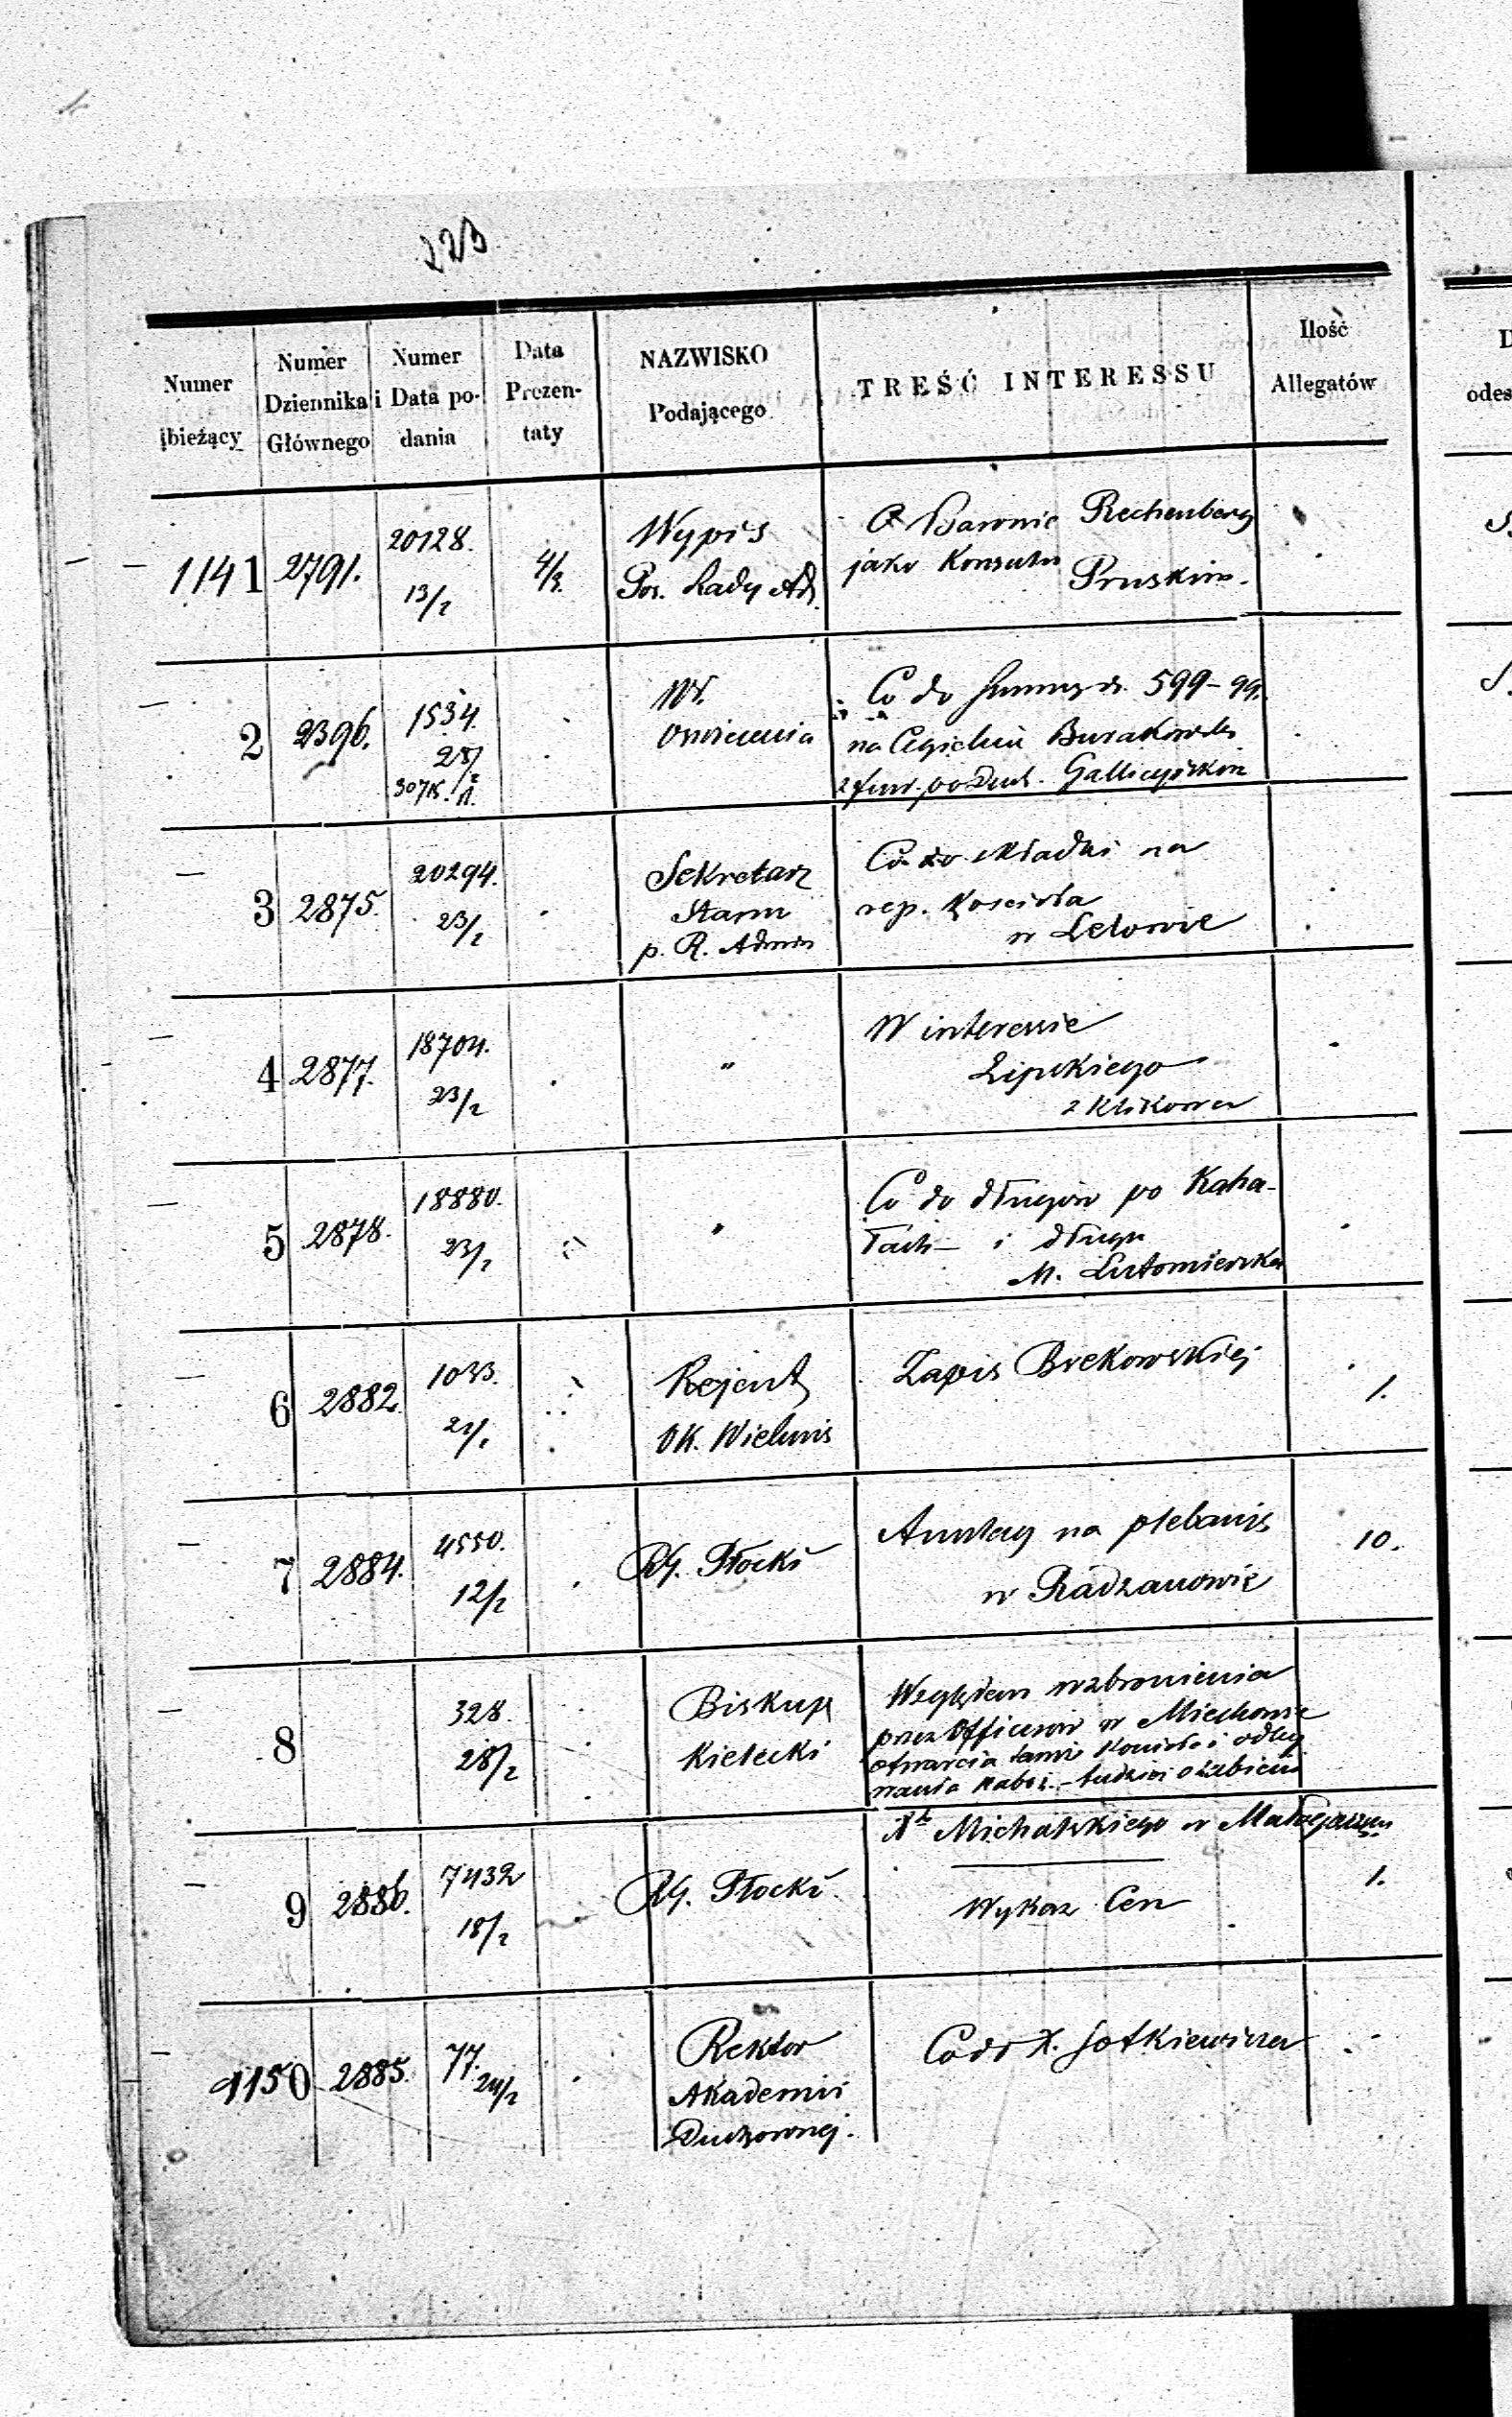 223
Numer bieżący
Numer Dziennika Głównego
Numer i Data podania
Data Prezentaty
NAZWISKO Podającego
TREŚĆ INTERESSU
Ilość Allegatów
1141 2791. 20128. 13/2 4/3.
Wypis
Pos. Rady Ad.
O Baronie Rechenberg
jako Konsulu
Pruskim.
2 2396. 1534. 28/2
Co do Summy 599-99.
na Cegielni
Gallicyjskim
3 2875. 20294. 23/2
Sekretarz
Stanu
p. R. Admin
Co do składki na
rep. Kościoła
w Lelowie
4 2877. 18704. 23/2 "
W interessie
Lipskiego
z Klikowa
5 2878. 18880. 23/2 "
Co do długów po Kaha-
łach – i długu
M. Lutomierska
6 2882. 1033. 21/2
Rejent
Ok. Wieluńs
Zapis Brekowskiej
1.
7 2884. 4550. 12/2
RG. Płocki
Anszlag na plebanię
w Radzanowie
10.
8 328. 28/2
Biskup
Kielecki
Względem wzbronienia
przez Officerów w Miechowie
otwarcia tamże Kościoła i odby
wania naboż. – tudzież o zabiciu
Xa Michalskiego w
9 2886. 7432 18/2
RG. Płocki.
Wykaz Cen
1.
1150 2885. 77. 24/2
Rektor
Akademii
Duchownej.
Co do X. Sotkiewicza